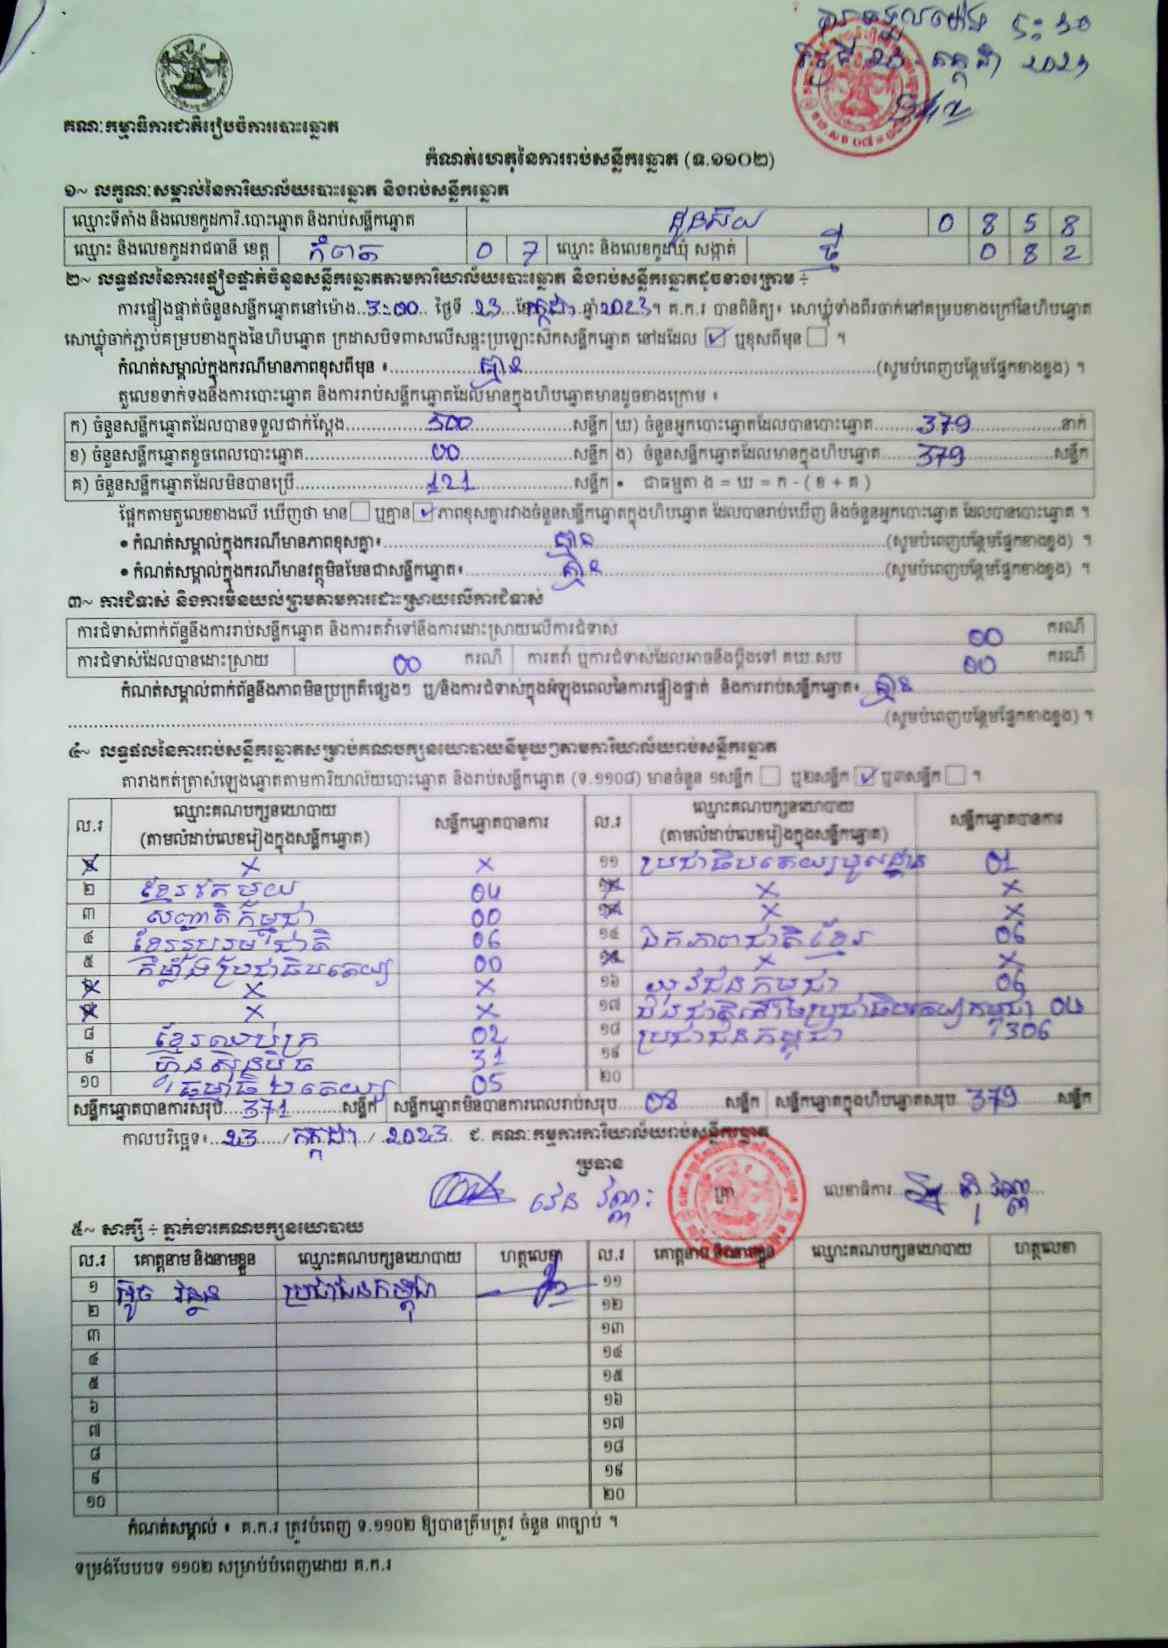 គណៈកម្មាធិការជាតិរៀបចំការបោះឆ្នោត
កំណត់ហេតុនៃការរាប់សន្លឹកឆ្នោត (ទ.១១០២)
១~ លក្ខណៈសម្គាល់នៃការិយាល័យបោះឆ្នោត និងរាប់សន្លឹកឆ្នោត
ឈ្មោះទីតាំង និងលេខកូដការិ.បោះឆ្នោត និងរាប់សន្លឹកឆ្នោត ដូនស័យ 0 8 5 8
ឈ្មោះ និងលេខកូដរាជធានី ខេត្ត កំពត 0 7 ឈ្មោះ និងលេខកូដឃុំ សង្កាត់ ថ្មី 0 8 2
២~ លទ្ធផលនៃការផ្ទៀងផ្ទាត់ចំនួនសន្លឹកឆ្នោតតាមការិយាល័យបោះឆ្នោត និងរាប់សន្លឹកឆ្នោតដូចខាងក្រោម ÷
ការផ្ទៀងផ្ទាត់ចំនួនសន្លឹកឆ្នោតនៅម៉ោង..3:00.. ថ្ងៃទី ..23...ខែកក្កដា..ឆ្នាំ2023។ គ.ក.រ បានពិនិត្យ៖ សោឃ្លុំទាំងពីរចាក់នៅគម្របខាងក្រៅនៃហិបឆ្នោត
សោឃ្លុំចាក់ភ្ជាប់គម្របខាងក្នុងនៃហិបឆ្នោត ក្រដាសបិទពាសលើសន្ទះប្រឡោះសិកសន្លឹកឆ្នោត នៅដដែល ☑ ឬខុសពីមុន ☐ ។
កំណត់សម្គាល់ក្នុងករណីមានភាពខុសពីមុន ៖ គ្មាន (សូមបំពេញបន្ថែមផ្នែកខាងខ្នង) ។
តួលេខទាក់ទងនឹងការបោះឆ្នោត និងការរាប់សន្លឹកឆ្នោតដែលមានក្នុងហិបឆ្នោតមានដូចខាងក្រោម ៖
ក) ចំនួនសន្លឹកឆ្នោតដែលបានទទួលជាក់ស្តែង 500 សន្លឹក ឃ) ចំនួនអ្នកបោះឆ្នោតដែលបានបោះឆ្នោត 379 នាក់
ខ) ចំនួនសន្លឹកឆ្នោតខូចពេលបោះឆ្នោត 00 សន្លឹក ង) ចំនួនសន្លឹកឆ្នោតដែលមានក្នុងហិបឆ្នោត 379 សន្លឹក
គ) ចំនួនសន្លឹកឆ្នោតដែលមិនបានប្រើ 121 សន្លឹក • ជាធម្មតា ង = ឃ = ក - ( ខ + គ )
ផ្អែកតាមតួលេខខាងលើ ឃើញថា មាន ☐ ឬគ្មាន ☑ ភាពខុសគ្នារវាងចំនួនសន្លឹកឆ្នោតក្នុងហិបឆ្នោត ដែលបានរាប់ឃើញ និងចំនួនអ្នកបោះឆ្នោត ដែលបានបោះឆ្នោត ។
• កំណត់សម្គាល់ក្នុងករណីមានភាពខុសគ្នា៖ គ្មាន (សូមបំពេញបន្ថែមផ្នែកខាងខ្នង) ។
• កំណត់សម្គាល់ក្នុងករណីមានវត្ថុមិនមែនជាសន្លឹកឆ្នោត៖ គ្មាន (សូមបំពេញបន្ថែមផ្នែកខាងខ្នង) ។
៣~ ការជំទាស់ និងការមិនយល់ព្រមតាមការដោះស្រាយលើការជំទាស់
ការជំទាស់ពាក់ព័ន្ធនឹងការរាប់សន្លឹកឆ្នោត និងការតវ៉ាទៅនឹងការដោះស្រាយលើការជំទាស់ 00 ករណី
ការជំទាស់ដែលបានដោះស្រាយ 00 ករណី ការតវ៉ា ឬការជំទាស់ដែលអាចនឹងប្តឹងទៅ គឃ.សប 00 ករណី
កំណត់សម្គាល់ពាក់ព័ន្ធនឹងភាពមិនប្រក្រតីផ្សេងៗ ឬ/និងការជំទាស់ក្នុងអំឡុងពេលនៃការផ្ទៀងផ្ទាត់ និងការរាប់សន្លឹកឆ្នោត៖ គ្មាន
(សូមបំពេញបន្ថែមផ្នែកខាងខ្នង) ។
៤~ លទ្ធផលនៃការរាប់សន្លឹកឆ្នោតសម្រាប់គណបក្សនយោបាយនីមួយៗតាមការិយាល័យរាប់សន្លឹកឆ្នោត
តារាងកត់ត្រាសំឡេងឆ្នោតតាមការិយាល័យបោះឆ្នោត និងរាប់សន្លឹកឆ្នោត (ទ.១១០៨) មានចំនួន ១សន្លឹក ☐ ឬ២សន្លឹក ☑ ឬ៣សន្លឹក ☐ ។
ល.រ ឈ្មោះគណបក្សនយោបាយ (តាមលំដាប់លេខរៀងក្នុងសន្លឹកឆ្នោត) សន្លឹកឆ្នោតបានការ ល.រ ឈ្មោះគណបក្សនយោបាយ (តាមលំដាប់លេខរៀងក្នុងសន្លឹកឆ្នោត) សន្លឹកឆ្នោតបានការ
១ × × ១១ ប្រជាធិបតេយ្យមូលដ្ឋាន 01
២ ខ្មែររួបរួម 04 ១២ × ×
៣ សញ្ជាតិកម្ពុជា 00 ១៣ × ×
៤ ខ្មែររួបរួមជាតិ 06 ១៤ ឯកភាពជាតិខ្មែរ 06
៥ កម្លាំងប្រជាធិបតេយ្យ 00 ១៥ × ×
៦ × × ១៦ យុវជនកម្ពុជា 06
៧ × × ១៧ 04
៨ ខ្មែរឈប់ក្រ 02 ១៨ ប្រជាជនកម្ពុជា 306
៩ ហ៊្វុនស៊ិនប៉ិច 31 ១៩
១០ ធម្មាធិបតេយ្យ 05 ២០
សន្លឹកឆ្នោតបានការសរុប 371 សន្លឹក សន្លឹកឆ្នោតមិនបានការពេលរាប់សរុប 08 សន្លឹក សន្លឹកឆ្នោតក្នុងហិបឆ្នោតសរុប 379 សន្លឹក
កាលបរិច្ឆេទ៖ 23 / កក្កដា / 2023 ជ. គណៈកម្មការការិយាល័យរាប់សន្លឹកឆ្នោត
ប្រធាន
វេន វណ្ណៈ ត្រា លេខាធិការ
៥~ សាក្សី ÷ ភ្នាក់ងារគណបក្សនយោបាយ
ល.រ គោត្តនាម និងនាមខ្លួន ឈ្មោះគណបក្សនយោបាយ ហត្ថលេខា ល.រ គោត្តនាម និងនាមខ្លួន ឈ្មោះគណបក្សនយោបាយ ហត្ថលេខា
១ ប្រជាជនកម្ពុជា ១១
២ ១២
៣ ១៣
៤ ១៤
៥ ១៥
៦ ១៦
៧ ១៧
៨ ១៨
៩ ១៩
១០ ២០
កំណត់សម្គាល់ ៖ គ.ក.រ ត្រូវបំពេញ ទ.១១០២ ឱ្យបានត្រឹមត្រូវ ចំនួន ៣ច្បាប់ ។
ទម្រង់បែបបទ ១១០២ សម្រាប់បំពេញដោយ គ.ក.រ